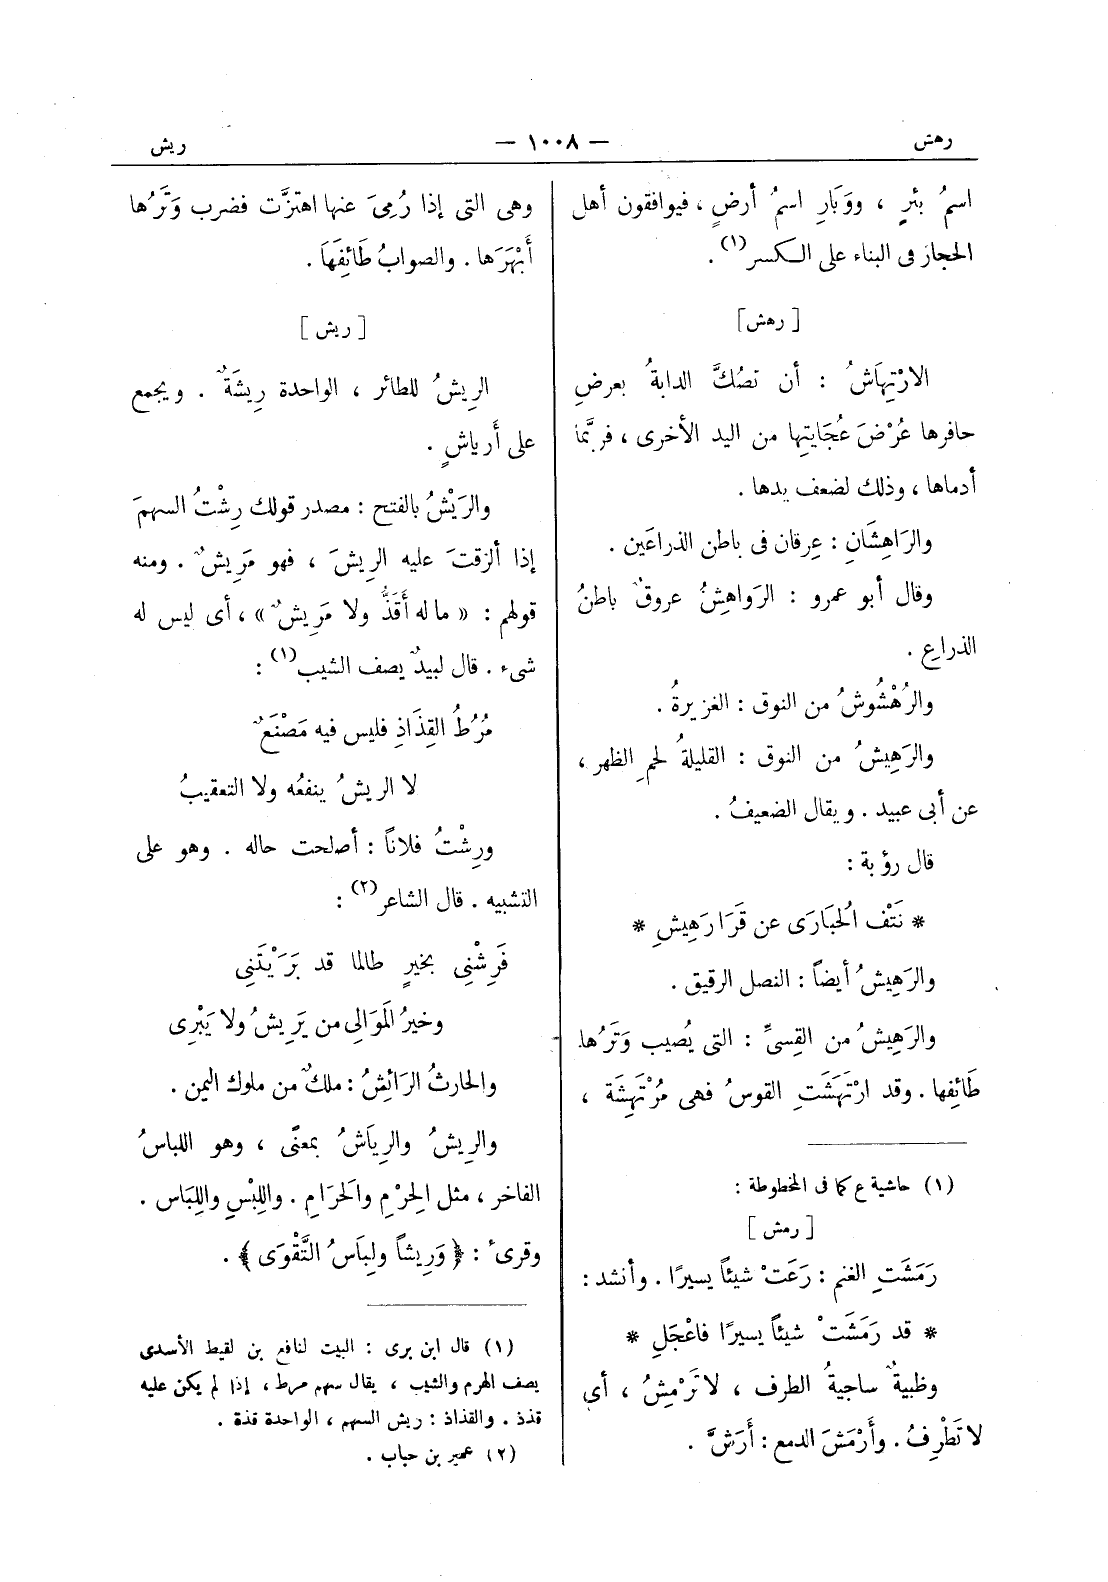 رهش — ١٠٠٨ — ريش
اسمُ بئرٍ ، ووَبَارِ اسمُ أرضٍ ، فيوافقون أهل
الحجاز فى البناء على الكسر(١) .
[ رهش ]
الارْتِهَاشُ : أن تصُكَّ الدابةُ بعرضِ
حافرها عُرْضَ عُجَايتِها من اليد الأخرى ، فربَّما
أدماها ، وذلك لضعف يدها .
والرَاهِشَانِ : عِرقان فى باطن الذراعَين .
وقال أبو عمرو : الرَواهِشُ عروقٌ باطنُ
الذراعِ .
والرُهْشُوشُ من النوق : الغزيرةُ .
والرَهِيشُ من النوق : القليلةُ لحمِ الظهر ،
عن أبى عبيد . ويقال الضعيفُ .
قال رؤبة :
* نَتْفَ الحُبَارَى عن قَرَا رَهِيشِ *
والرَهِيشُ أيضاً : النصل الرقيق .
والرَهِيشُ من القِسىِّ : التى يُصيب وَتَرُها
طَائِفها . وقد ارْتَهَشَتِ القوسُ فهى مُرْتَهِشَة ،
(١) حاشية ع كما فى المخطوطة :
[ رمش ]
رَمَشَتِ الغنم : رَعَتْ شيئاً يسيرًا . وأنشد :
* قد رَمَشَتْ شيئاً يسيرًا فاعْجَلِ *
وظبيةٌ ساجيةُ الطرف ، لا تَرْمِشُ ، أى
لا تَطْرِفُ . وأَرْمَشَ الدمع : أَرَشَّ .
وهى التى إذا رُمِىَ عنها اهتزَّت فضرب وَتَرُها
أَبْهَرَها . والصوابُ طَائِفَهَا .
[ ريش ]
الرِيشُ للطائر ، الواحدة رِيشَةٌ . ويجمع
على أَرياشٍ .
والرَيْشُ بالفتح : مصدر قولك رِشْتُ السهمَ
إذا ألزقتَ عليه الريشَ ، فهو مَرِيشٌ . ومنه
قولهم : « ما له أَقَذُّ ولا مَرِيشٌ » ، أى ليس له
شىء . قال لبيدٌ يصف الشيب(١) :
مُرُطُ القِذَاذِ فليس فيه مَصْنَعٌ
لا الريشُ ينفعُه ولا التعقيبُ
ورِشْتُ فلاناً : أصلحت حاله . وهو على
التشبيه . قال الشاعر(٢) :
فَرِشْنِى بخيرٍ طالما قد بَرَيْتَنِى
وخيرُ المَوَالِى من يَرِيشُ ولا يَبْرِى
والحارثُ الرَائِشُ : ملكٌ من ملوك اليمن .
والرِيشُ والرِيَاشُ بمعنًى ، وهو اللباسُ
الفاخر ، مثل الحِرْمِ والحَرَامِ . واللِبْسِ واللِبَاس .
وقرىء : ﴿ وَرِيشاً ولِبَاسُ التَّقْوَى ﴾ .
(١) قال ابن برى : البيت لنافع بن لقيط الأسدى
يصف الهرم والشيب ، يقال سهم مرط ، إذا لم يكن عليه
قذذ . والقذاذ : ريش السهم ، الواحدة قذة .
(٢) عمير بن حباب .